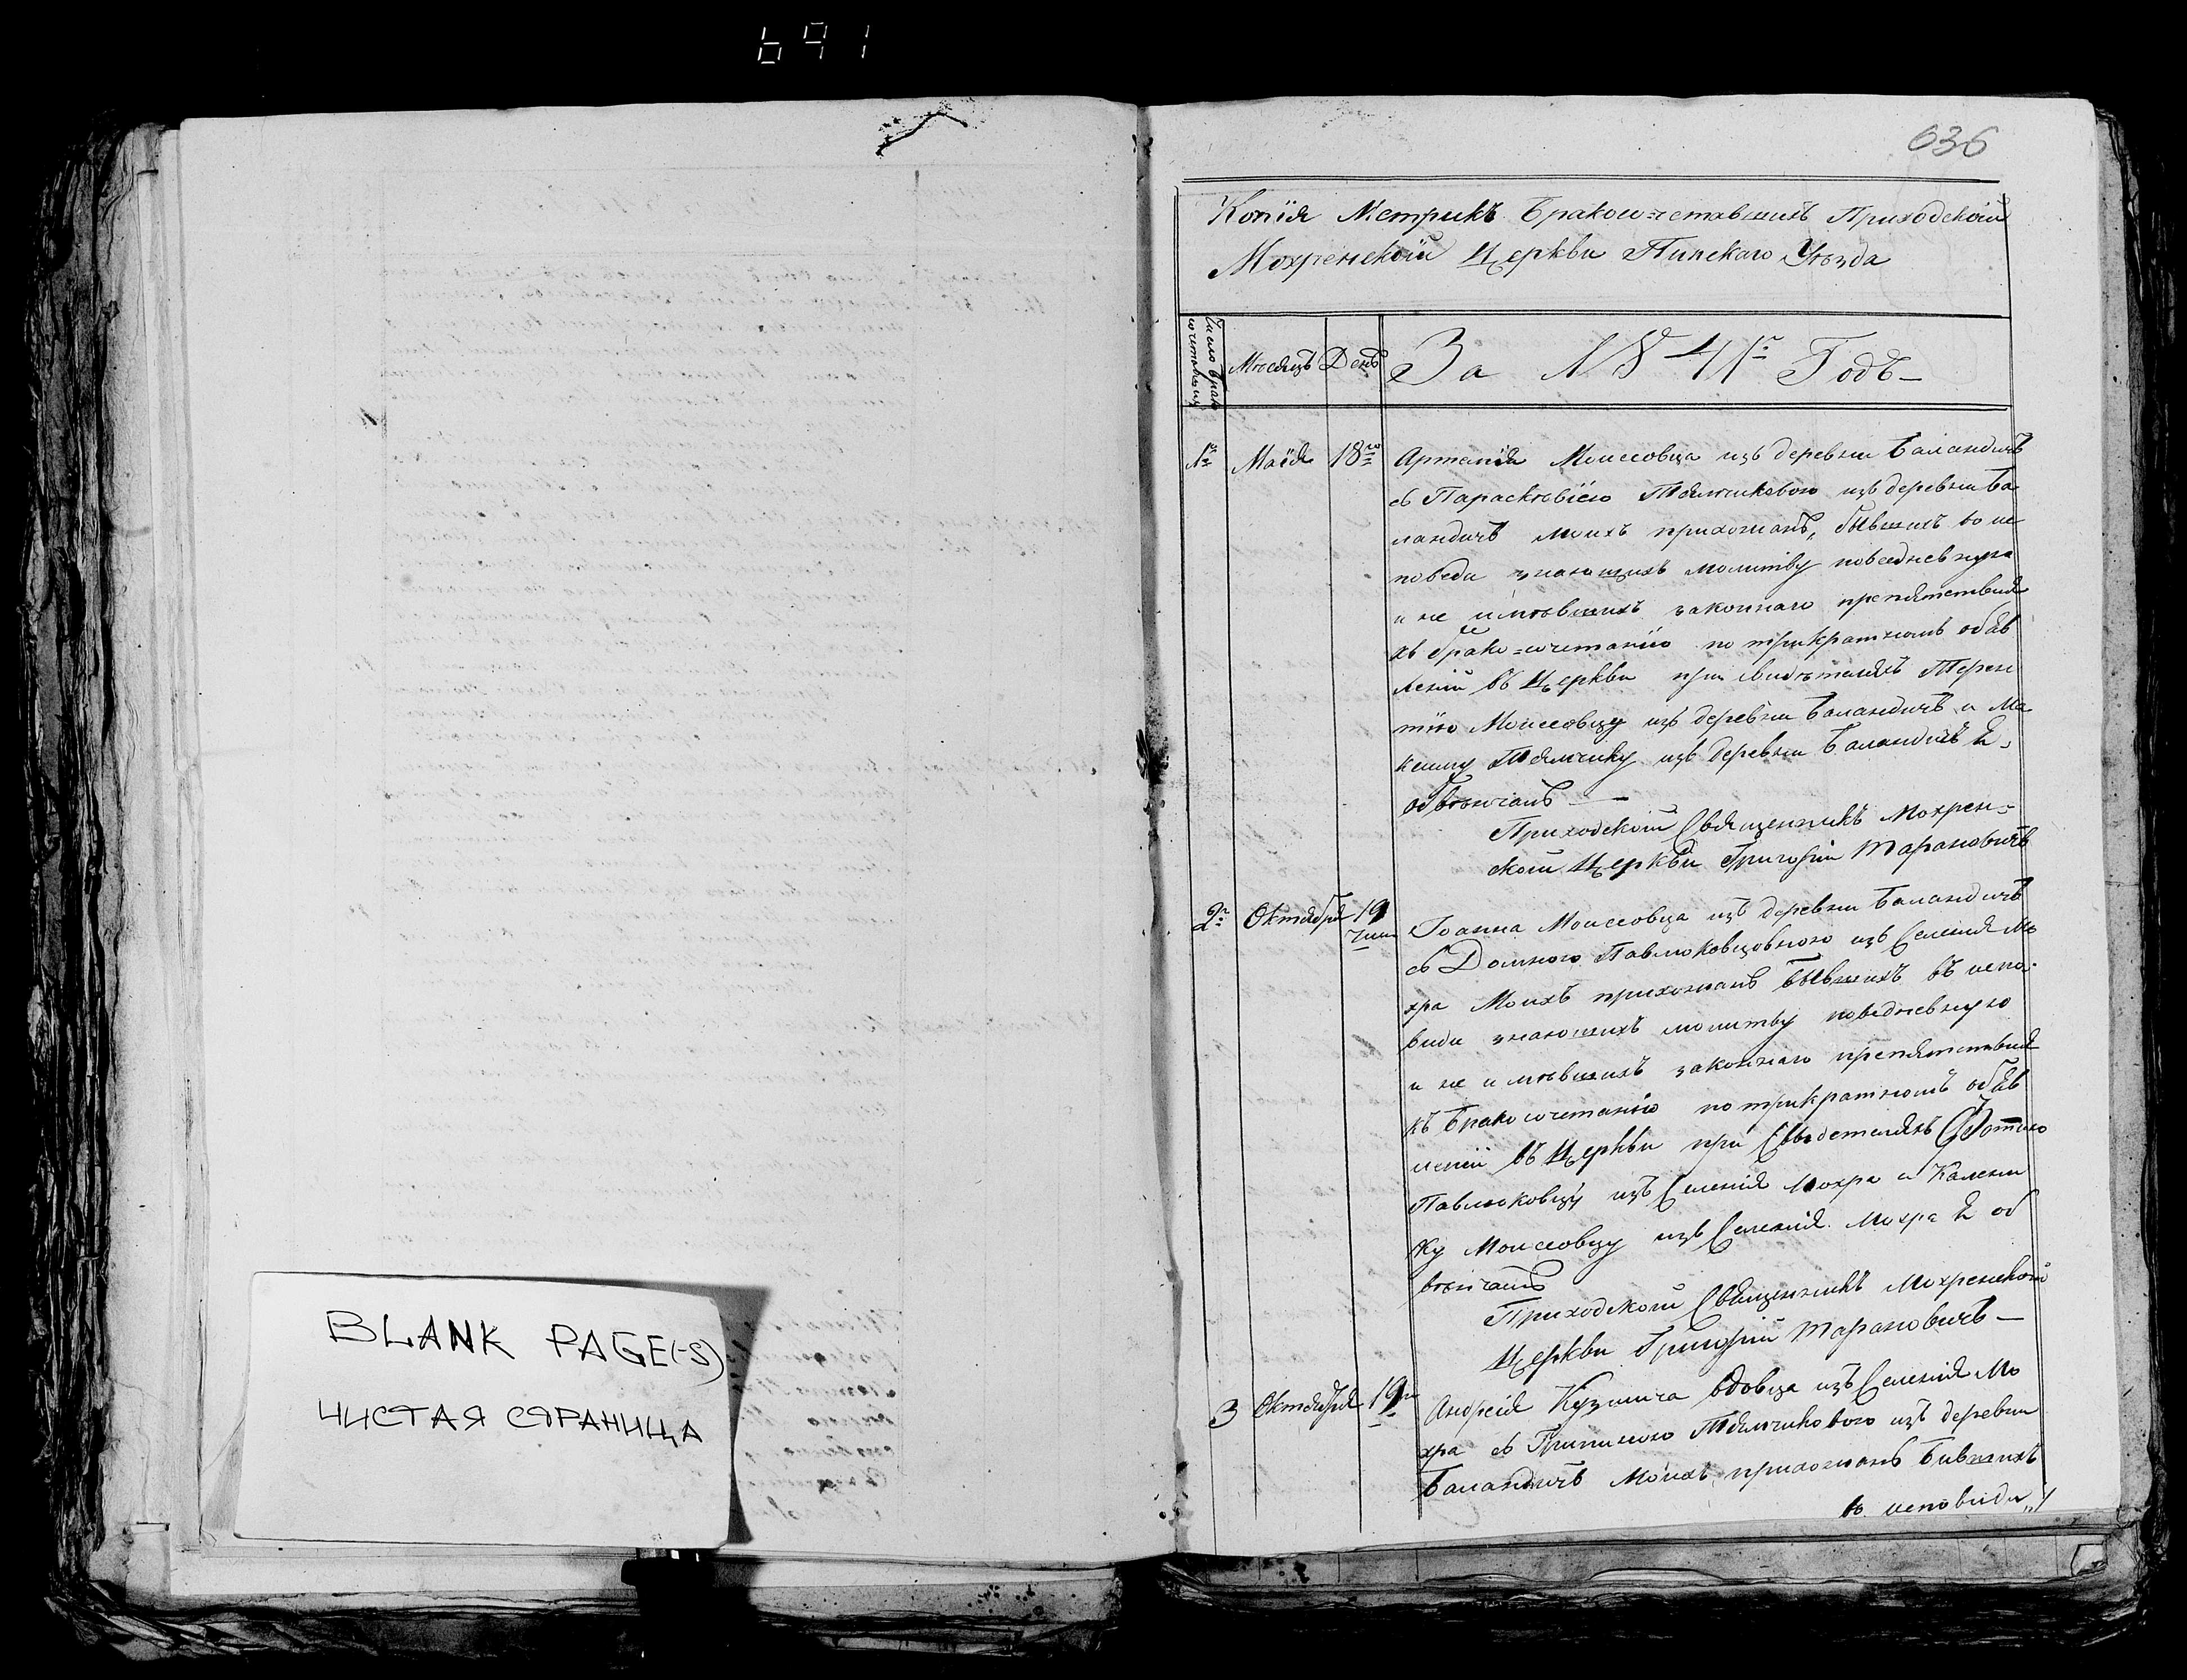 691
636
Копія Метрикъ Бракосо=четавшихъ Приходской
Мохренской Церкви Пинскаго Уѣзда
Число брако
сочетавших
Мѣсяцъ
День
За 1841г Годъ
1й
Маія
18го
Артемія Моисеовца изъ деревни Баландичъ
съ Параскевіею Тѣлмчиковою изъ деревни Ба
ландичъ моихъ прихожанъ, бывшихъ во ис
поведи знающихъ молитву
и не имѣвшихъ законнаго препятствия
къ брако=сочетанію по трикратномъ объяв
леніи въ Церкви при свидѣтеляхъ Терен
тію Моисеовцу изъ деревни Баландичъ и Ма
ксиму изъ деревни Баландичъ Я
обвѣнчалъ —
Приходской Священникъ Мохрен=
ской Церкви Григорій Тарановичъ
2г
Октября
19
Іоанна Моисеовца изъ деревни Баландичъ
съ Домною Павлюковцовною изъ Селенія Мо
хра Моихъ прихожанъ бывшихъ въ испо
види знающихъ молитву
и не имѣвшихъ законнаго препятствия
къ Бракосочетанію по трикратномъ объяв
леніи въ Церкви при Свѣдетеляхъ
Павлюковцу изъ Селенія Мохра и Калени
ку Моисеовцу изъ Селенія Мохра Я об
вѣнчалъ
Приходской Священникъ Мохренской
Церкви Григорій Тарановичъ —
3
Октября
19
Андрея Кузмича вдовца изъ Селенія Мо
хра съ изъ деревни
Баландичъ Моихъ прихожанъ Бившихъ
во исповиди
BLANK PAGE(-S)
ЧИСТАЯ СТРАНИЦА